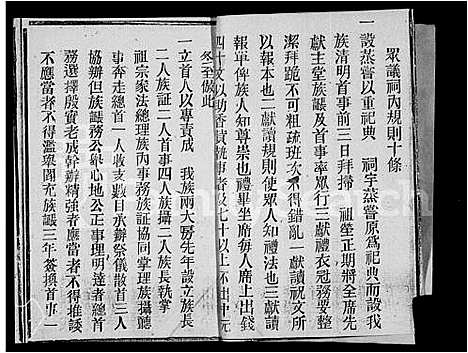 眾議祠內規則十條
一設蒸嘗以重祀典　祠宇蒸嘗原爲祀典而設我
族清明首事前三日拜掃　祖塋正期將全席先
獻主堂族誠及首事率眾行三獻禮衣冠務要整
潔拜跪不可粗疏班次不得錯亂一獻讀祝文所
以報本也二獻讀規則使眾人知禮法也三獻讀
報單俾族人知尊崇也禮畢坐席每席上出錢
四十文以助香貲執事者及七十以上不出中元
冬至倣此
一立首人以專責成　我族兩大房先年設立族長
二人族証二人首事四人族攝二人族長執掌
祖宗家法總理族內事務族証協同掌理族攝聽
首事奔走總首一人收支數目承辦祭儀散首三人
協辦但族誠務公舉心地公正事理明達者首
務選擇殷實老成幹辦精強者應當者不得推諉
不應當者不得濫舉閤充族誠三年簽換首事一